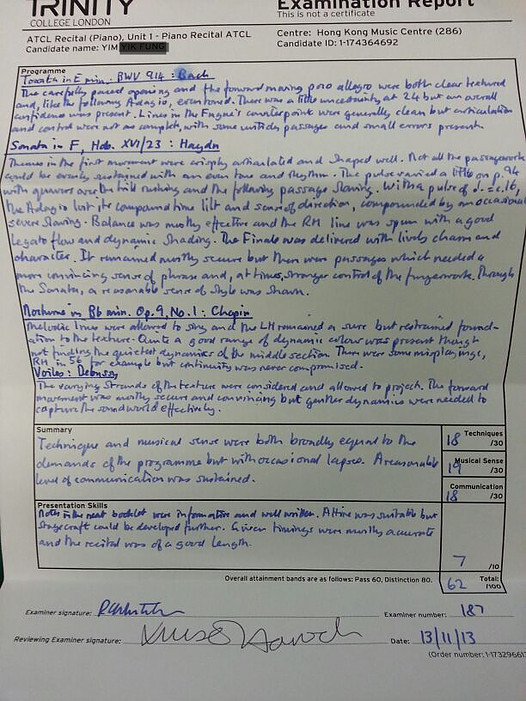 TRINITY
COLLEGE LONDON
Examination Report
This is not a certificate
ATCL Recital (Piano), Unit 1 - Piano Recital ATCL
Candidate name: YIM YIK FUNG
Centre: Hong Kong Music Centre (286)
Candidate ID: 1-174364692
Programme
Toccata in E min. BWV 914 : Bach
The carefully paced opening and the forward moving poco allegro were both clear textured
and, like the following Adagio, even toned. There was a little uncertainty at 24 but an overall
confidence was present. Lines in the Fugue's counterpoint were generally clean but articulation
and control were not as complete, with some untidy passages and small errors present.
Sonata in F, Hob. XVI/23 : Haydn
Themes in the first movement were crisply articulated and shaped well. Not all the passagework
could be evenly sustained with an even tone and rhythm. The pulse varied a little on p.94
with quavers and the trill rushing and the following passage slowing. With a pulse of
the Adagio lost its compound time lilt and sense of direction, compounded by an occasional
severe slowing. Balance was mostly effective and the RH line was spun with a good
legato flow and dynamic shading. The Finale was delivered with lively charm and
character. It remained mostly secure but there were passages which needed a
more convincing sense of phrase and, at times, stronger control of the fingerwork. Through
the Sonata, a reasonable sense of style was shown.
Nocturne in Bb min. Op. 9, No. 1 : Chopin
Melodic lines were allowed to sing and the LH remained a sure but restrained found-
ation to the texture. Quite a good range of dynamic colour was present though
not finding the quietest dynamics of the middle section. There were some misplayings,
RH in 56 for example but continuity was never compromised.
Voiles : Debussy
The varying strands of the texture were considered and allowed to project. The forward
movement was mostly secure and convincing but gentler dynamics were needed to
capture the soundworld effectively.
Summary
Technique and musical sense were both broadly equal to the
demands of the programme but with occasional lapses. A reasonable
level of communication was sustained.
18 Techniques
/30
19 Musical Sense
/30
18 Communication
/30
Presentation Skills
Notes in the neat booklet were informative and well written. Attire was suitable but
stagecraft could be developed further. Given timings were mostly accurate
and the recital was of a good length.
7 /10
Overall attainment bands are as follows: Pass 60, Distinction 80.
62 Total:
/100
Examiner signature:
Examiner number: 187
Reviewing Examiner signature:
Date: 13/11/13
(Order number: 1-1732966